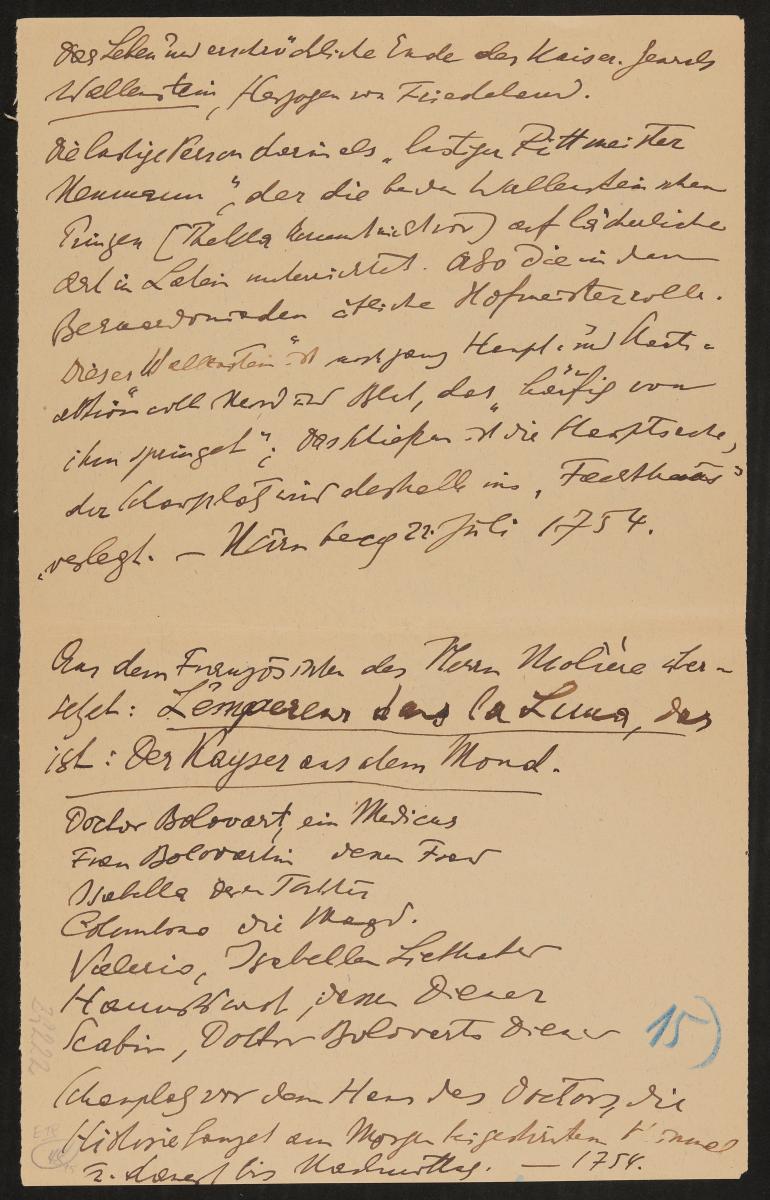 Das Leben und erschröckliche Ende des Kaiser. Generals
Wallenstein, Herzogen von Friedeland.
Die lustige Person darin als „lustiger Rittmeister
Neumann", der die beiden Wallensteinschen
Prinzen (Thekla kommt nicht vor) auf lächerliche
Art in Latein unterrichtet. Also die in den
übliche Hofmeisterrolle.
Dieser „Wallenstein" ist noch ganz Haupt- und Staats-
aktion voll Mord und Blut, das „häufig von
ihm springet"; das Schießen ist die Hauptsache,
der Schauplatz wird deshalb ins „
verlegt. — Nürnberg 22. Juli 1754.
Aus dem Französischen des Herrn Molière über-
setzet: L'empereur dans la Luna, das
ist: Der Kayser aus dem Mond.
Doctor Bolovart, ein Medicus
Frau Bolovartin dessen Frau
Isabella deren Tochter
Columbina die Magd.
Valerio, Isabellen Liebhaber
Hannswurst, dessen Diener
Scabin, Doctor Boloverts Diener
15)
Schauplatz vor dem Haus des Doctors, die
Historie fanget am Morgen bei Himmel
u. dauert bis Nachmittag. — 1754.